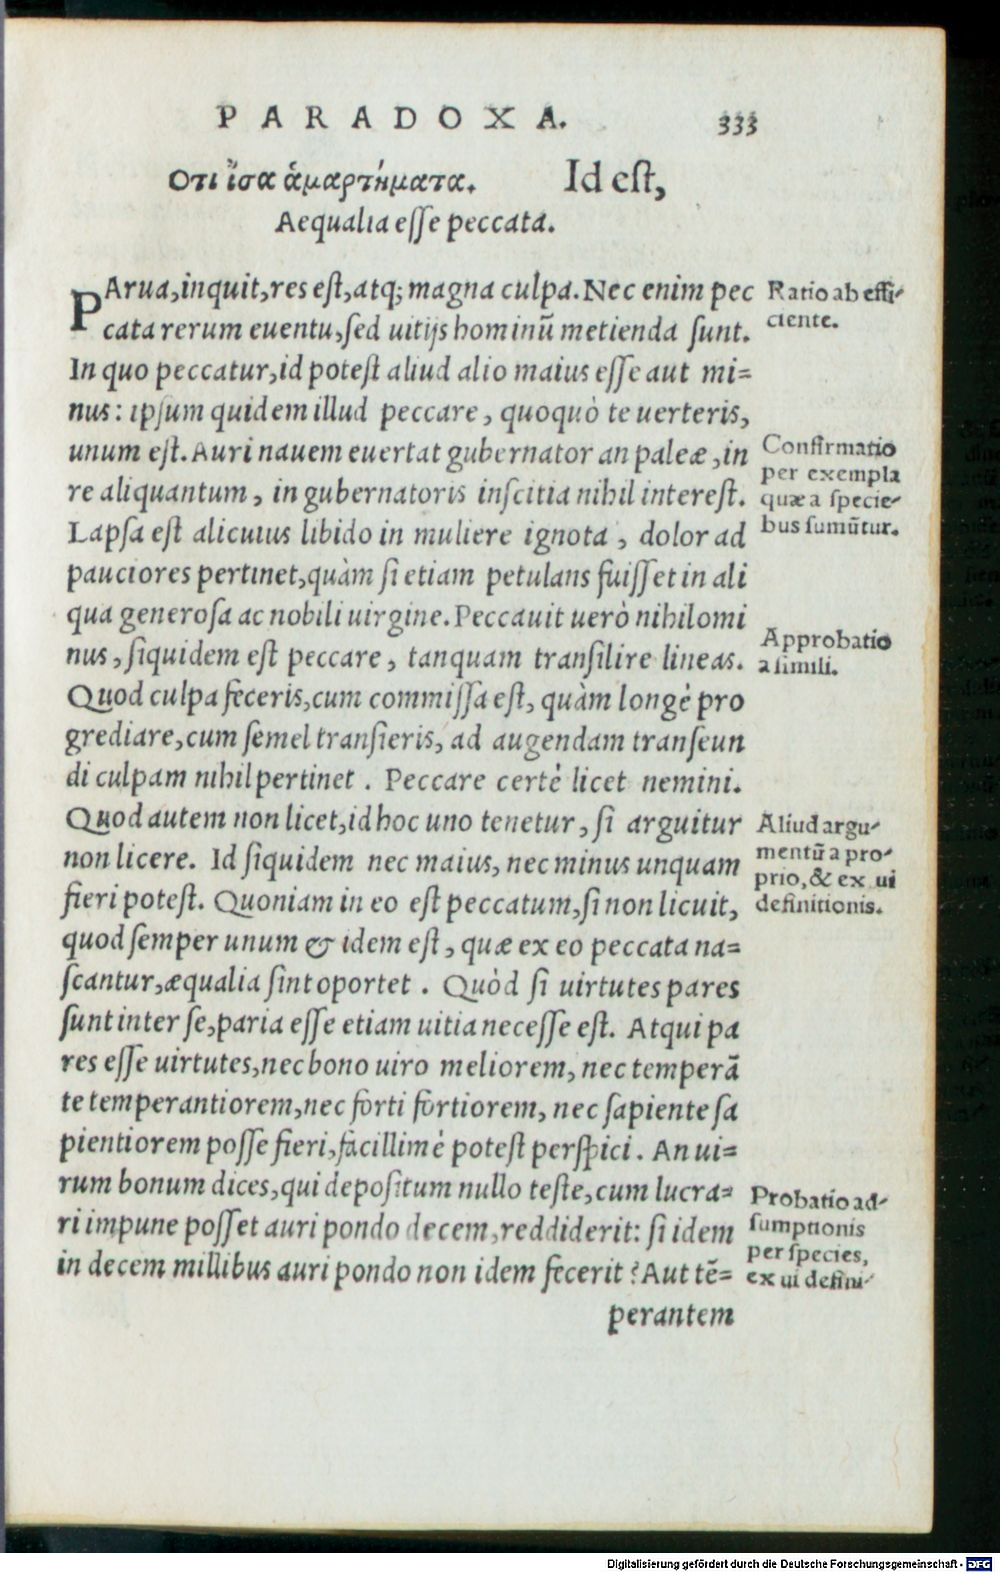 PARADOXA. 333
Οτι ἴσα ἁμαρτήματα. Id est,
Aequalia esse peccata.
PArua, inquit, res est, atq; magna culpa. Nec enim pec
cata rerum euentu, sed uitijs hominū metienda sunt.
In quo peccatur, id potest aliud alio maius esse aut mi=
nus: ipsum quidem illud peccare, quoquò te uerteris,
unum est. Auri nauem euertat gubernator an paleæ, in
re aliquantum, in gubernatoris inscitia nihil interest.
Lapsa est alicuius libido in muliere ignota, dolor ad
pauciores pertinet, quàm si etiam petulans fuisset in ali
qua generosa ac nobili uirgine. Peccauit uerò nihilomi
nus, siquidem est peccare, tanquam transilire lineas.
Quod culpa feceris, cum commissa est, quàm longè pro
grediare, cum semel transieris, ad augendam transeun
di culpam nihil pertinet. Peccare certè licet nemini.
Quod autem non licet, id hoc uno tenetur, si arguitur
non licere. Id siquidem nec maius, nec minus unquam
fieri potest. Quoniam in eo est peccatum, si non licuit,
quod semper unum & idem est, quæ ex eo peccata na=
scantur, æqualia sint oportet. Quòd si uirtutes pares
sunt inter se, paria esse etiam uitia necesse est. Atqui pa
res esse uirtutes, nec bono uiro meliorem, nec temperā
te temperantiorem, nec forti fortiorem, nec sapiente sa
pientiorem posse fieri, facillimè potest perspici. An ui=
rum bonum dices, qui depositum nullo teste, cum lucra=
ri impune posset auri pondo decem, reddiderit: si idem
in decem millibus auri pondo non idem fecerit? Aut tē=
perantem
Ratio ab effi-
ciente.
Confirmatio
per exempla
quæ a specie-
bus sumūtur.
Approbatio
a simili.
Aliud argu-
mentū a pro-
prio, & ex ui
definitionis.
Probatio ad-
sumptionis
per species,
ex ui defini-
Digitalisierung gefördert durch die Deutsche Forschungsgemeinschaft - DFG